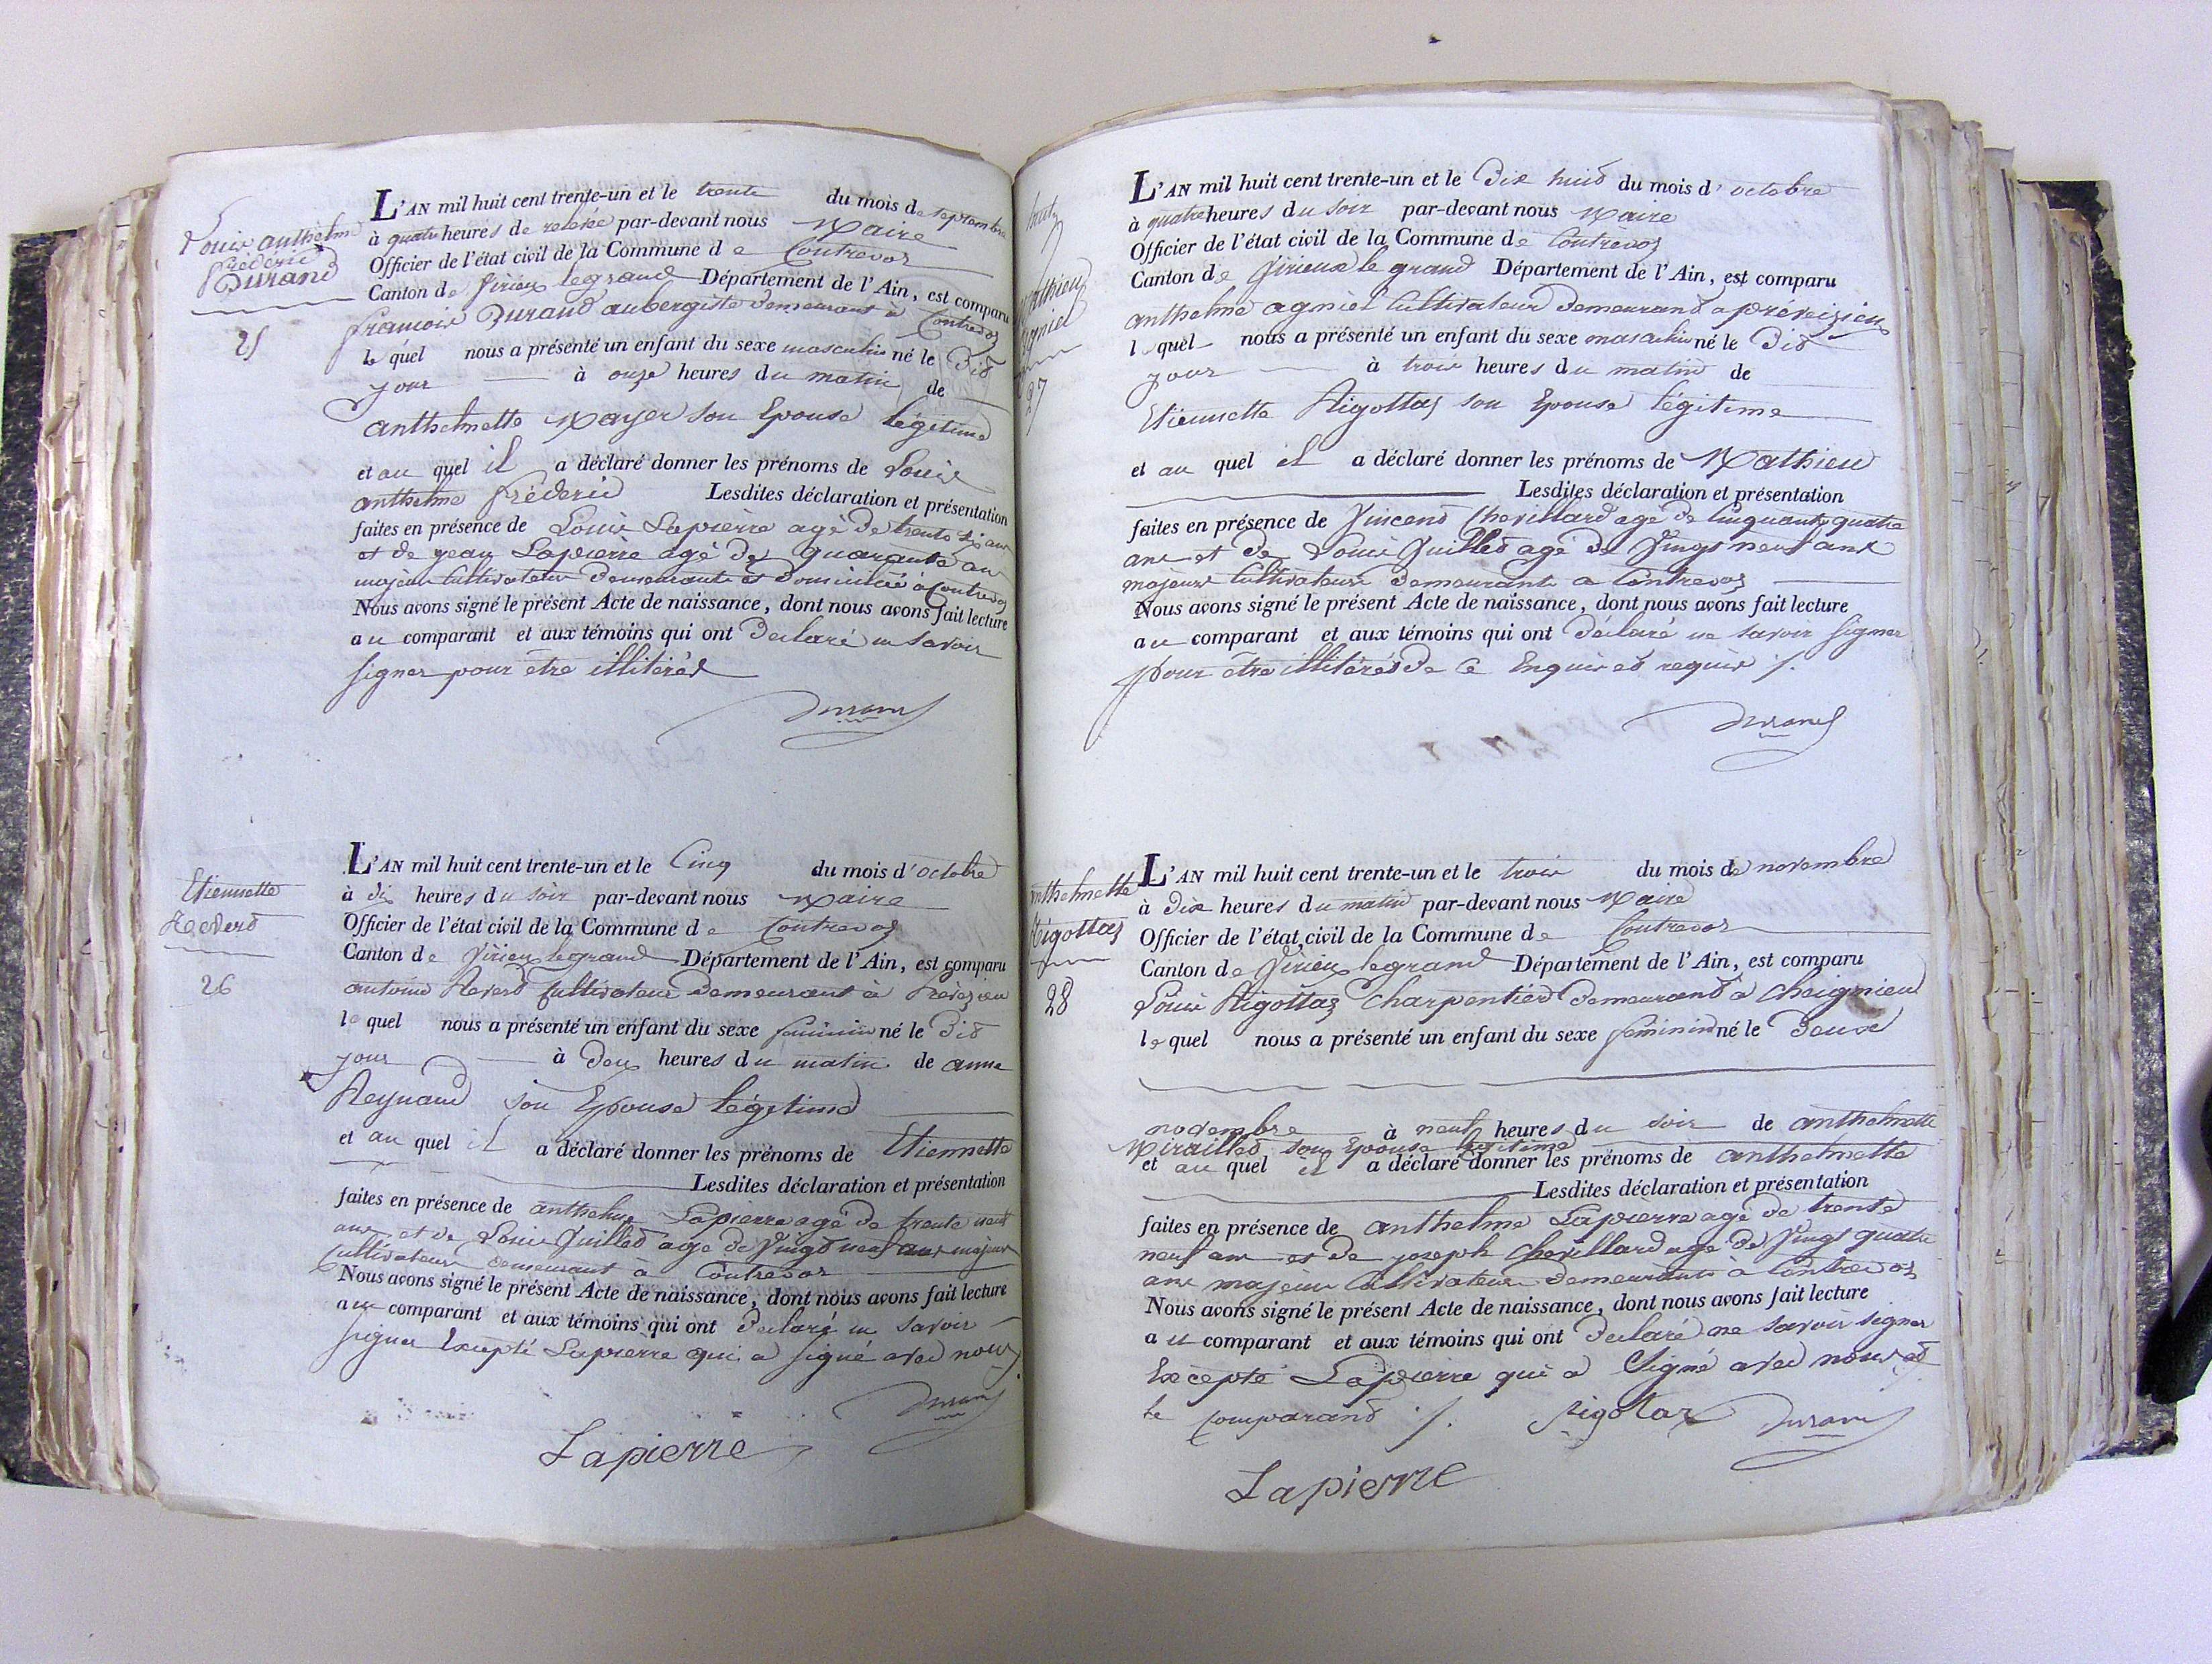 Louis anthelme
fréderic
Durand
25
L'AN mil huit cent trente-un et le trente du mois de septembre
à quatre heures de relevée par-devant nous Maire
Officier de l'état civil de la Commune de Contrevoz
Canton de Virieu legrand Département de l'Ain, est comparu
francois Durand aubergiste demeurant à Contrevoz
lequel nous a présenté un enfant du sexe masculin né le dit
jour à onze heures du matin de
anthelmette Mayer son Epouse légitime
et au quel il a déclaré donner les prénoms de Louis
anthelme fréderic Lesdites déclaration et présentation
faites en présence de Louis Lapierre agé de trente six ans
et de jean Lapierre agé de quarante ans
majeurs Cultivateurs demeurants et domiciliés à Contrevoz
Nous avons signé le présent Acte de naissance, dont nous avons fait lecture
au comparant et aux témoins qui ont declaré ne savoir
signer pour être illitérés
Durand
Etiennette
Reverd
26
L'AN mil huit cent trente-un et le Cinq du mois d'octobre
à dix heures du soir par-devant nous Maire
Officier de l'état civil de la Commune de Contrevoz
Canton de Virieu legrand Département de l'Ain, est comparu
antoine Reverd Cultivateur demeurant à Prévezieu
lequel nous a présenté un enfant du sexe feminin né le dit
jour à deux heures du matin de anne
Reynaud son Epouse légitime
et au quel il a déclaré donner les prénoms de Etiennette
Lesdites déclaration et présentation
faites en présence de anthelme Lapierre agé de trente neuf
ans et de Louis Juilled agé de Vingt neuf ans majeurs
Cultivateurs demeurant a Contrevoz
Nous avons signé le présent Acte de naissance, dont nous avons fait lecture
au comparant et aux témoins qui ont declaré ne savoir
signer Excepté Lapierre qui a signé avec nous
Durand
Lapierre
Mathieu
agniel
27
L'AN mil huit cent trente-un et le dix huit du mois d'octobre
à quatre heures du soir par-devant nous Maire
Officier de l'état civil de la Commune de Contrevoz
Canton de Virieux le grand Département de l'Ain, est comparu
anthelme agniel Cultivateur demeurand a préveizieu
lequel nous a présenté un enfant du sexe masculin né le dit
jour à trois heures du matin de
Etiennette Rigottaz son Epouse légitime
et au quel il a déclaré donner les prénoms de Mathieu
Lesdites déclaration et présentation
faites en présence de Vincend Chevillard agé de Cinquante quatre
ans et de Louis Juilled agé de Vingt neuf ans
majeurs Cultivateurs demeurants a Contrevoz
Nous avons signé le présent Acte de naissance, dont nous avons fait lecture
au comparant et aux témoins qui ont déclaré ne savoir signer
pour etre illitérés de Ce Enquis et requis /.
Durand
anthelmette
Rigottaz
28
L'AN mil huit cent trente-un et le trois du mois de novembre
à dix heures du matin par-devant nous Maire
Officier de l'état civil de la Commune de Contrevoz
Canton de Virieu legrand Département de l'Ain, est comparu
Louis Rigottaz Charpentier demeurand a Cheignieu
lequel nous a présenté un enfant du sexe feminin né le deux
novembre à neuf heures du soir de anthelmette
Mirailled son Epouse légitime
et au quel il a déclaré donner les prénoms de anthelmette
Lesdites déclaration et présentation
faites en présence de anthelme Lapierre agé de trente
neuf ans et de joseph Chevillard agé de Vingt quatre
ans majeurs Cultivateurs demeurants a Contrevoz
Nous avons signé le présent Acte de naissance, dont nous avons fait lecture
au comparant et aux témoins qui ont declaré ne savoir signer
Excepté Lapierre qui a Signé avec nous et
le Comparand /. Rigotaz Durand
Lapierre